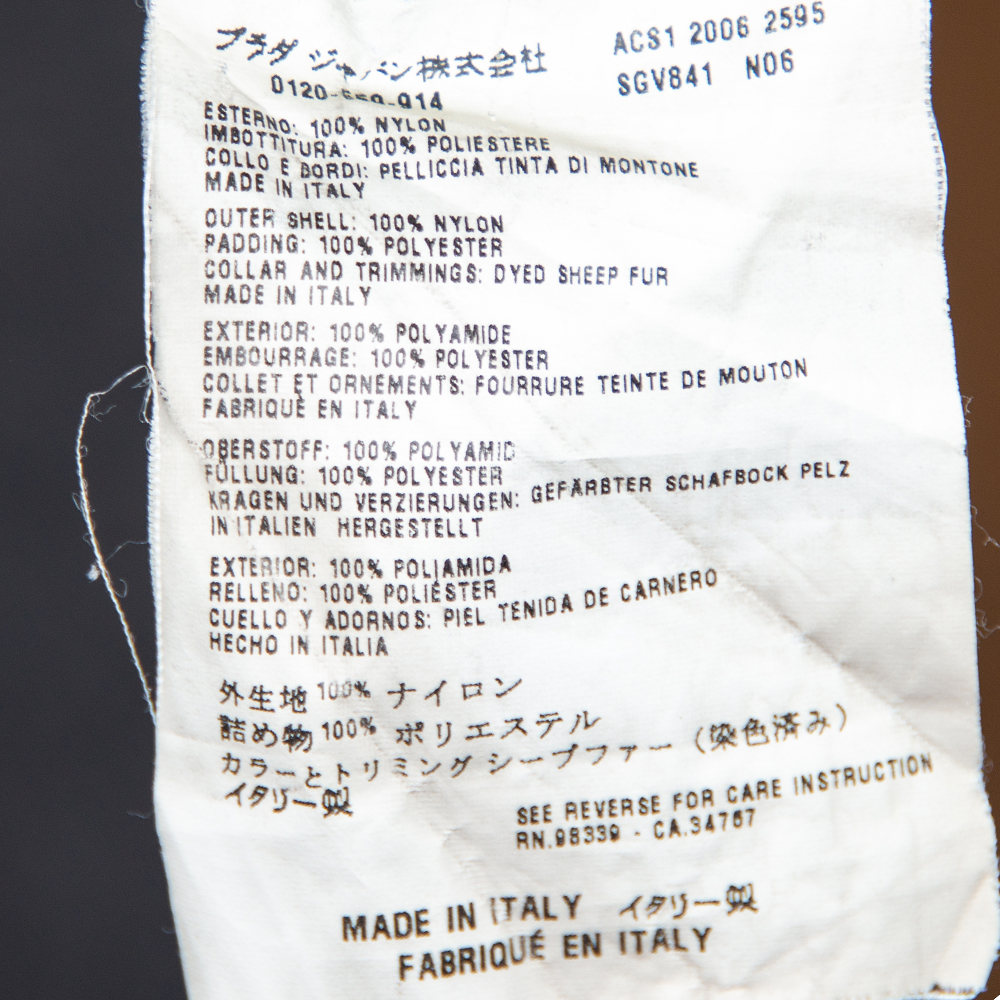 プラダ ジャパン株式会社
ACS1 2006 2595
0120-559-914
SGV841 N06
ESTERNO: 100% NYLON
IMBOTTITURA: 100% POLIESTERE
COLLO E BORDI: PELLICCIA TINTA DI MONTONE
MADE IN ITALY
OUTER SHELL: 100% NYLON
PADDING: 100% POLYESTER
COLLAR AND TRIMMINGS: DYED SHEEP FUR
MADE IN ITALY
EXTERIOR: 100% POLYAMIDE
EMBOURRAGE: 100% POLYESTER
COLLET ET ORNEMENTS: FOURRURE TEINTE DE MOUTON
FABRIQUÉ EN ITALY
OBERSTOFF: 100% POLYAMID
FÜLLUNG: 100% POLYESTER
KRAGEN UND VERZIERUNGEN: GEFÄRBTER SCHAFBOCK PELZ
IN ITALIEN HERGESTELLT
EXTERIOR: 100% POLIAMIDA
RELLENO: 100% POLIÉSTER
CUELLO Y ADORNOS: PIEL TENIDA DE CARNERO
HECHO IN ITALIA
外生地 100% ナイロン
詰め物 100% ポリエステル
カラーとトリミング シープファー (染色済み)
イタリー製
SEE REVERSE FOR CARE INSTRUCTION
RN.98339 - CA.34767
MADE IN ITALY イタリー製
FABRIQUÉ EN ITALY